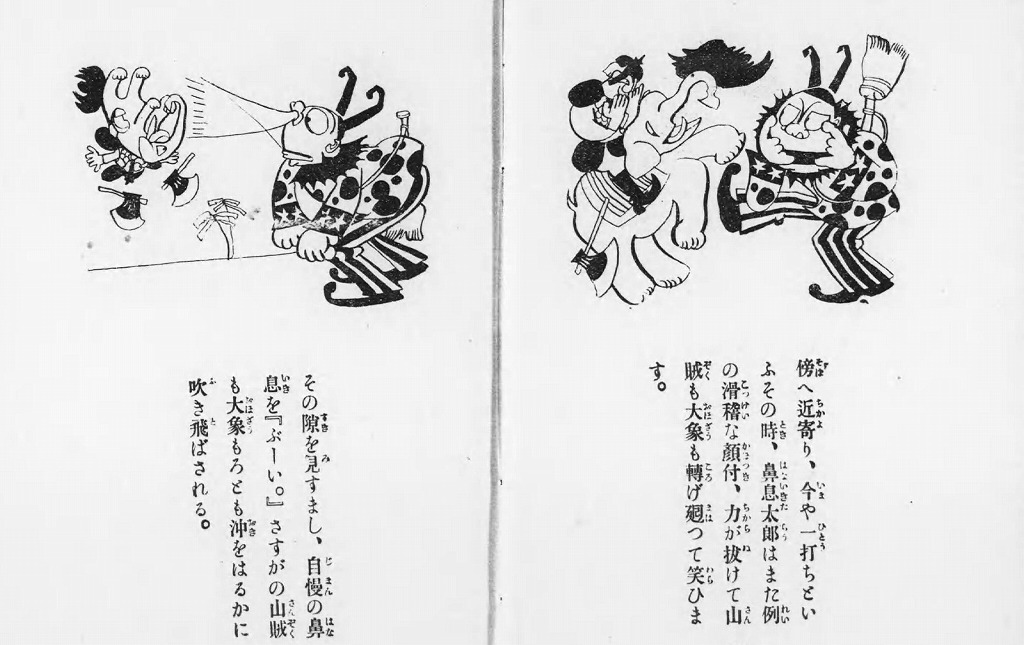 傍へ近寄り、今や一打ちとい
ふその時、鼻息太郎はまた例
の滑稽な顔付、力が抜けて山
賊も大象も轉げ廻つて笑ひま
す。
その隙を見すまし、自慢の鼻
息を『ぶーい。』さすがの山賊
も大象もろとも沖をはるかに
吹き飛ばされる。